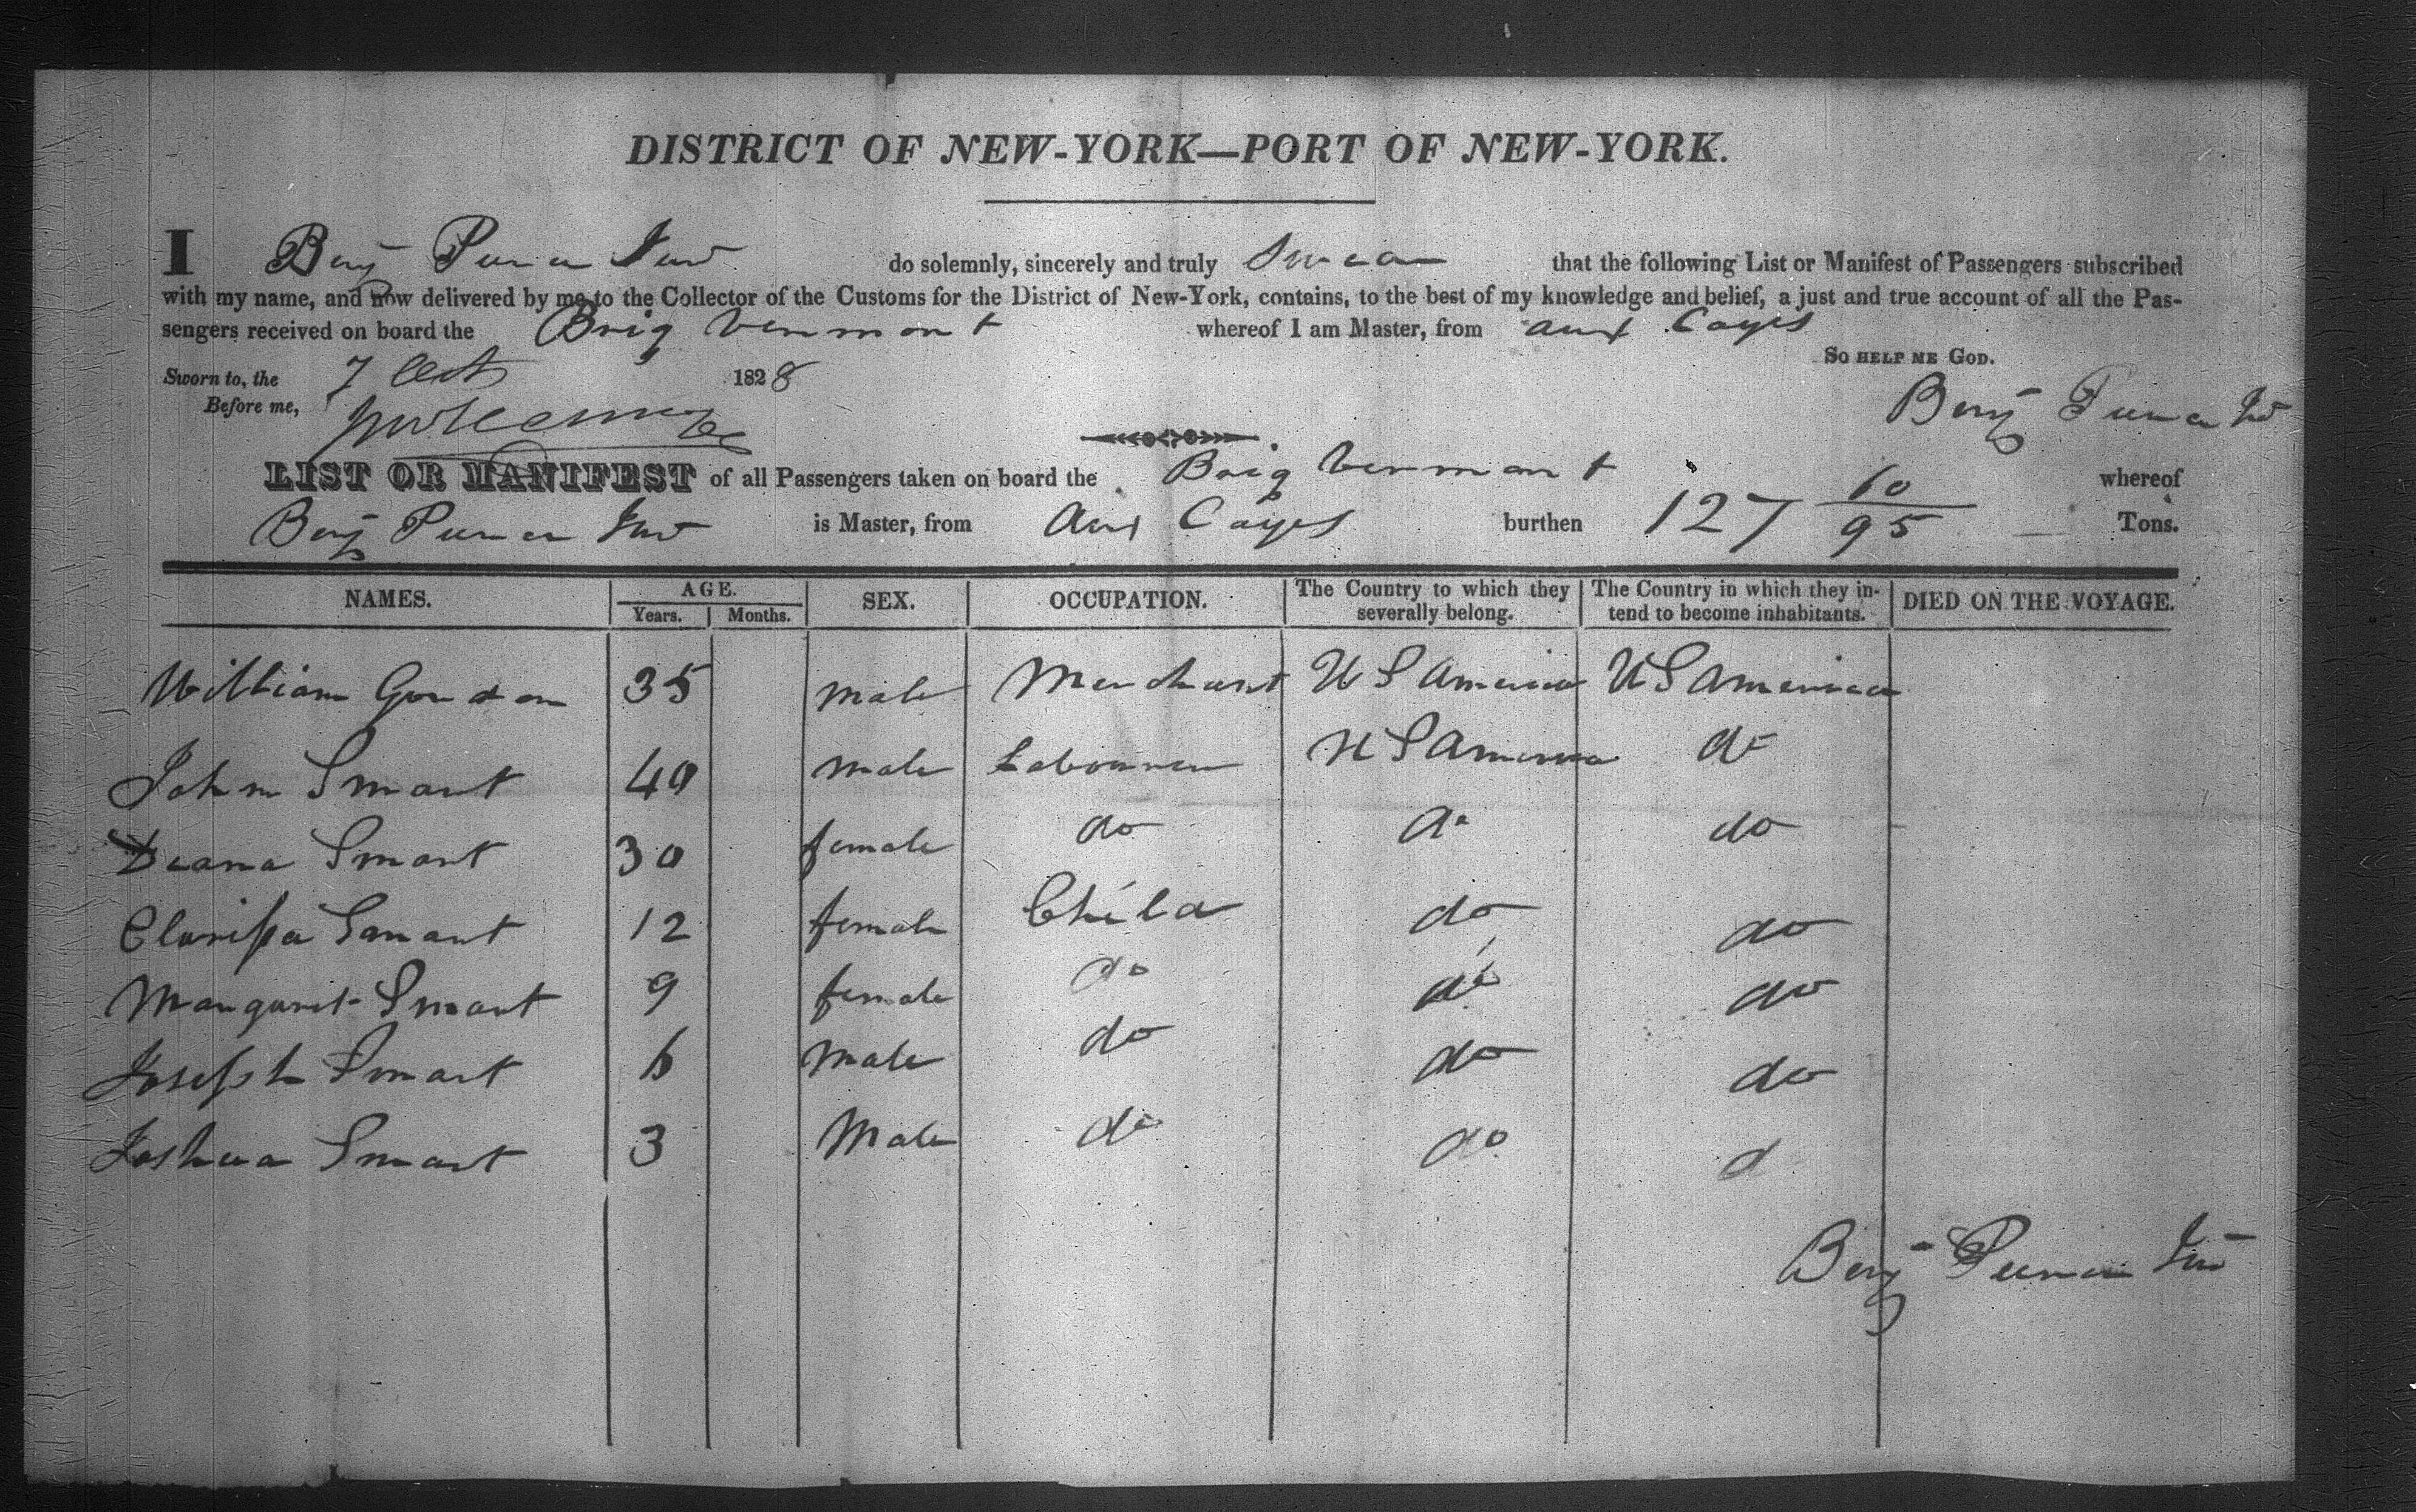 DISTRICT OF NEW-YORK—PORT OF NEW-YORK.
I Benj Turner Junr do solemnly, sincerely and truly Swear that the following List or Manifest of Passengers subscribed
with my name, and now delivered by me to the Collector of the Customs for the District of New-York, contains, to the best of my knowledge and belief, a just and true account of all the Pas-
sengers received on board the Brig Vermont whereof I am Master, from Aux Cayes
SO HELP ME GOD.
Sworn to, the 7 Oct 1828
Before me,
Benj Turner Jur
LIST OR MANIFEST of all Passengers taken on board the Brig Vermont whereof
Benj Turner Junr is Master, from Aux Cayes burthen 127 60/95 Tons.
NAMES. AGE. Years. Months. SEX. OCCUPATION. The Country to which they severally belong. The Country in which they in-tend to become inhabitants. DIED ON THE VOYAGE.
William Gordon 35 male Merchant U S America U S America
John Smart 40 male Labourer U S America do
Deana Smart 30 female do do do
Clarissa Smart 12 female Child do do
Margaret Smart 9 female do do do
Joseph Smart 6 Male do do do
Joshua Smart 3 Male do do d
Benj Turner Jur